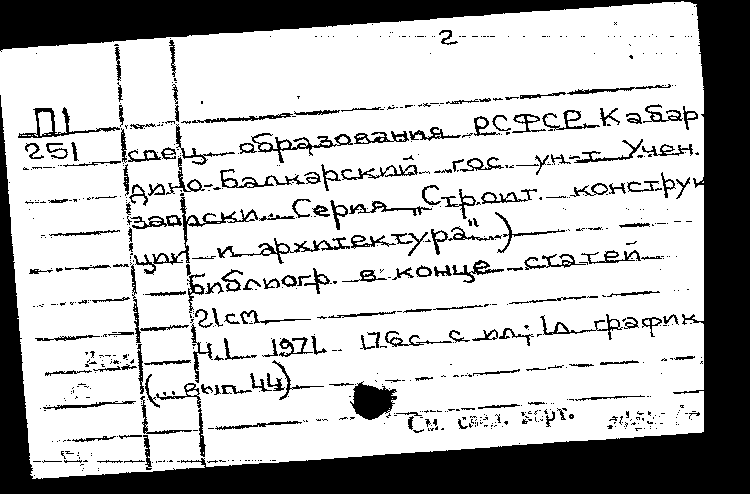 2
П1
251
спец. образования РСФСР. Кабар-
дино-Балкарский гос. ун-т. Учен.
записки... Серия „Строит. конструк
ции и архитектура")
Библиогр. в конце статей
21см.
Ч.1 1971. 176с. с ил; 1л. график.
(... вып. 44)
См. след. карт.